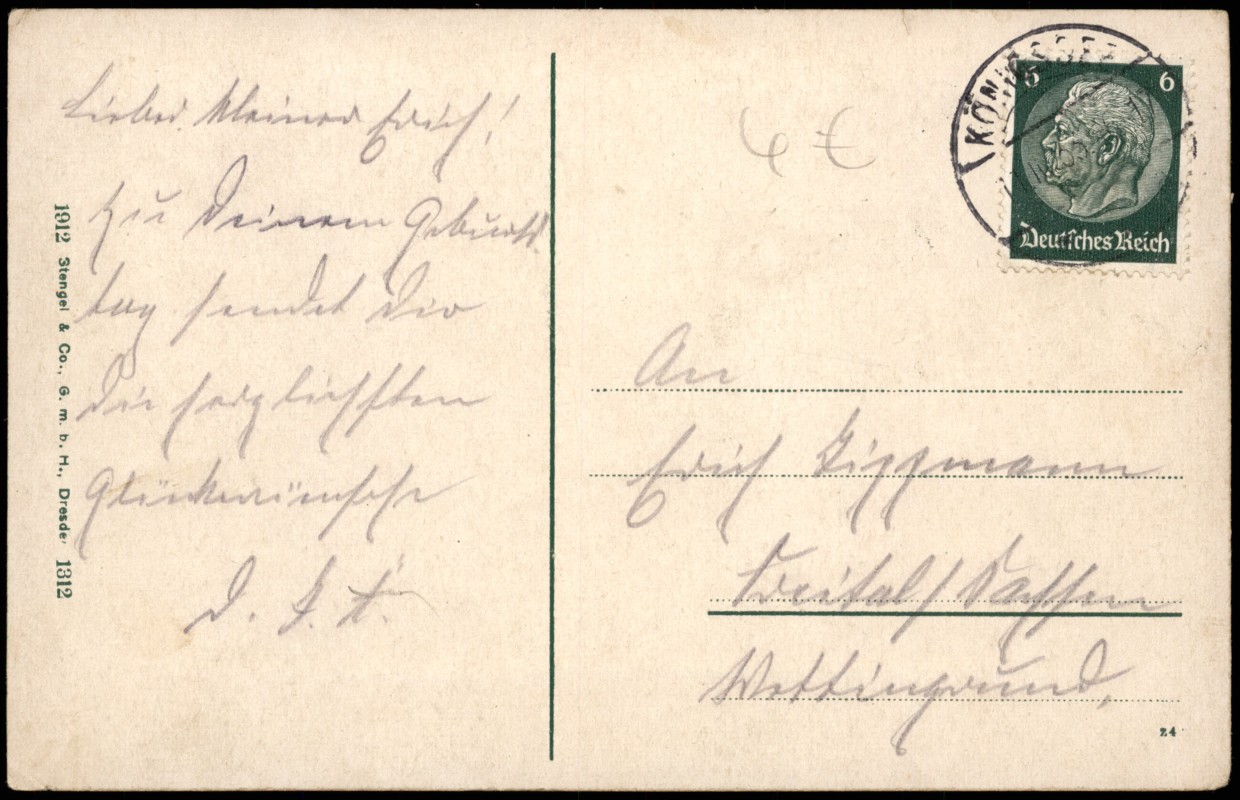 Lieber kleiner Erich!
Zu Deinem Geburts
tag sendet Dir
die herzlichsten
Glückwünsche
D. F. K.
1912 Stengel & Co., G. m. b. H., Dresden 1312
4 €
KÖNIGSBERG
6 6
Deutsches Reich
An
Erich Zippmann
Freital / Sachsen
Wettingrund,
z4